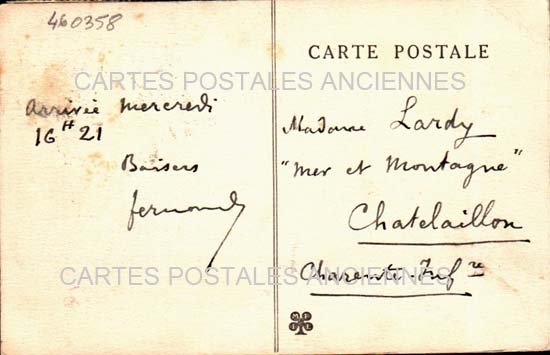 460358
CARTE POSTALE
CARTES POSTALES ANCIENNES
Arrivée mercredi
16H 21
Baisers
fernand
Madame Lardy
"Mer et Montagne"
Chatelaillon
Charente-Infre
CARTES POSTALES ANCIENNES